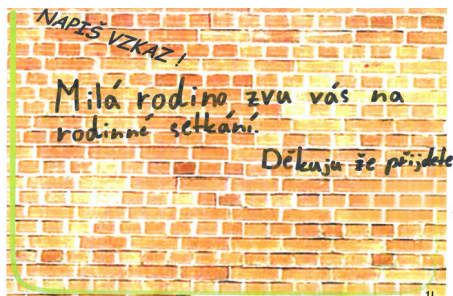 NAPIŠ VZKAZ!
Milá rodino zvu vás na
rodinné setkání.
Děkuju že přijdete
11